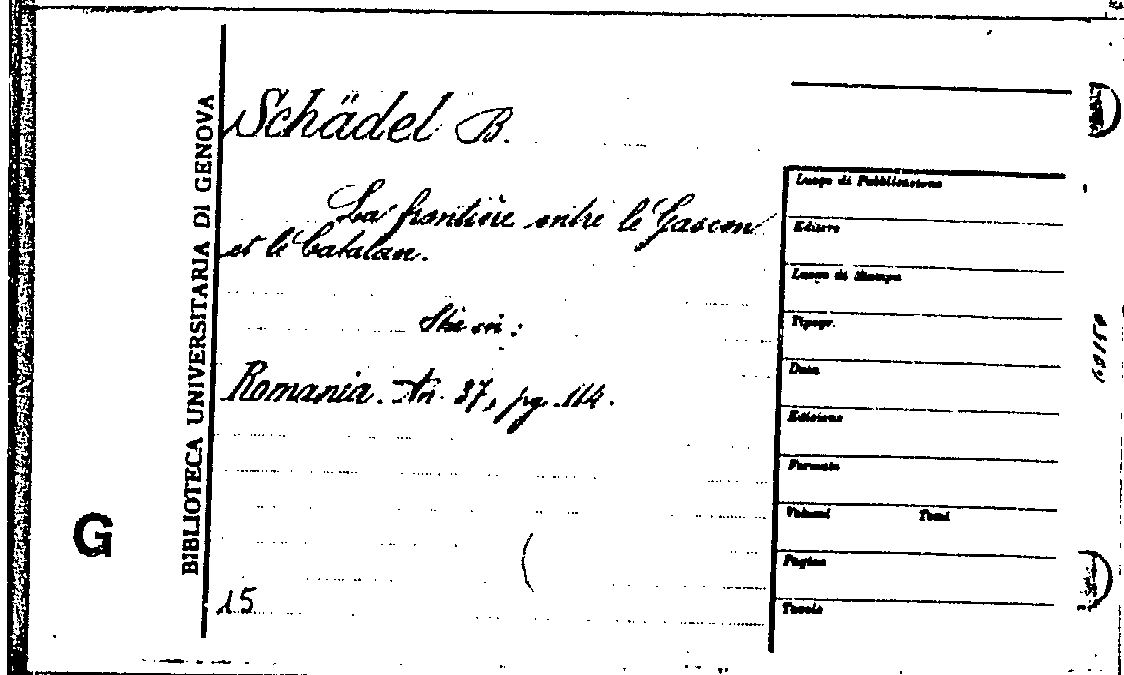 BIBLIOTECA UNIVERSITARIA DI GENOVA
G
Schädel B.
La frontière entre le Gascon
et le Catalan.
Sta in:
Romania. An. 37, pg. 114.
15
Luogo di Pubblicazione
Editore
Luogo di Stampa
Tipogr.
Data
Edizione
Formato
Volumi Tomi
Pagine
Tavole